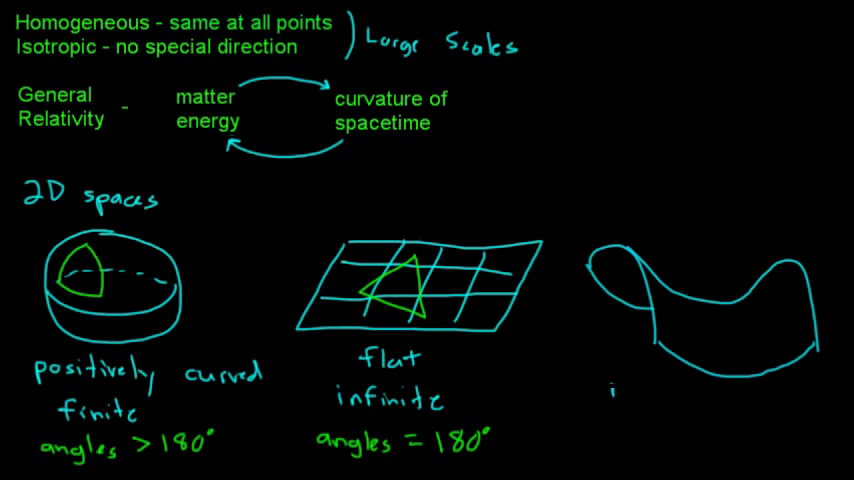 Homogeneous - same at all points
Isotropic - no special direction
Large Scales
General Relativity - matter energy
curvature of spacetime
2D spaces
positively curved
finite
angles > 180°
flat
infinite
angles = 180°